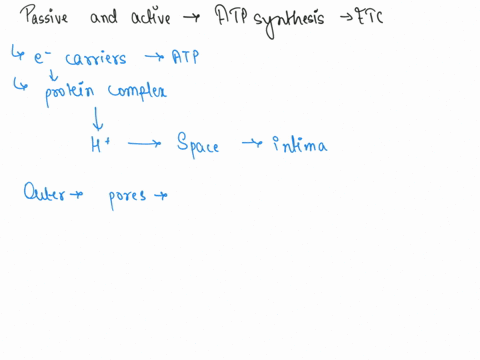 Passive and active → ATP synthesis → ETC
↳ e⁻ carriers → ATP
↓
↳ protein complex
↓
H⁺ → Space → intima
Outer → pores →